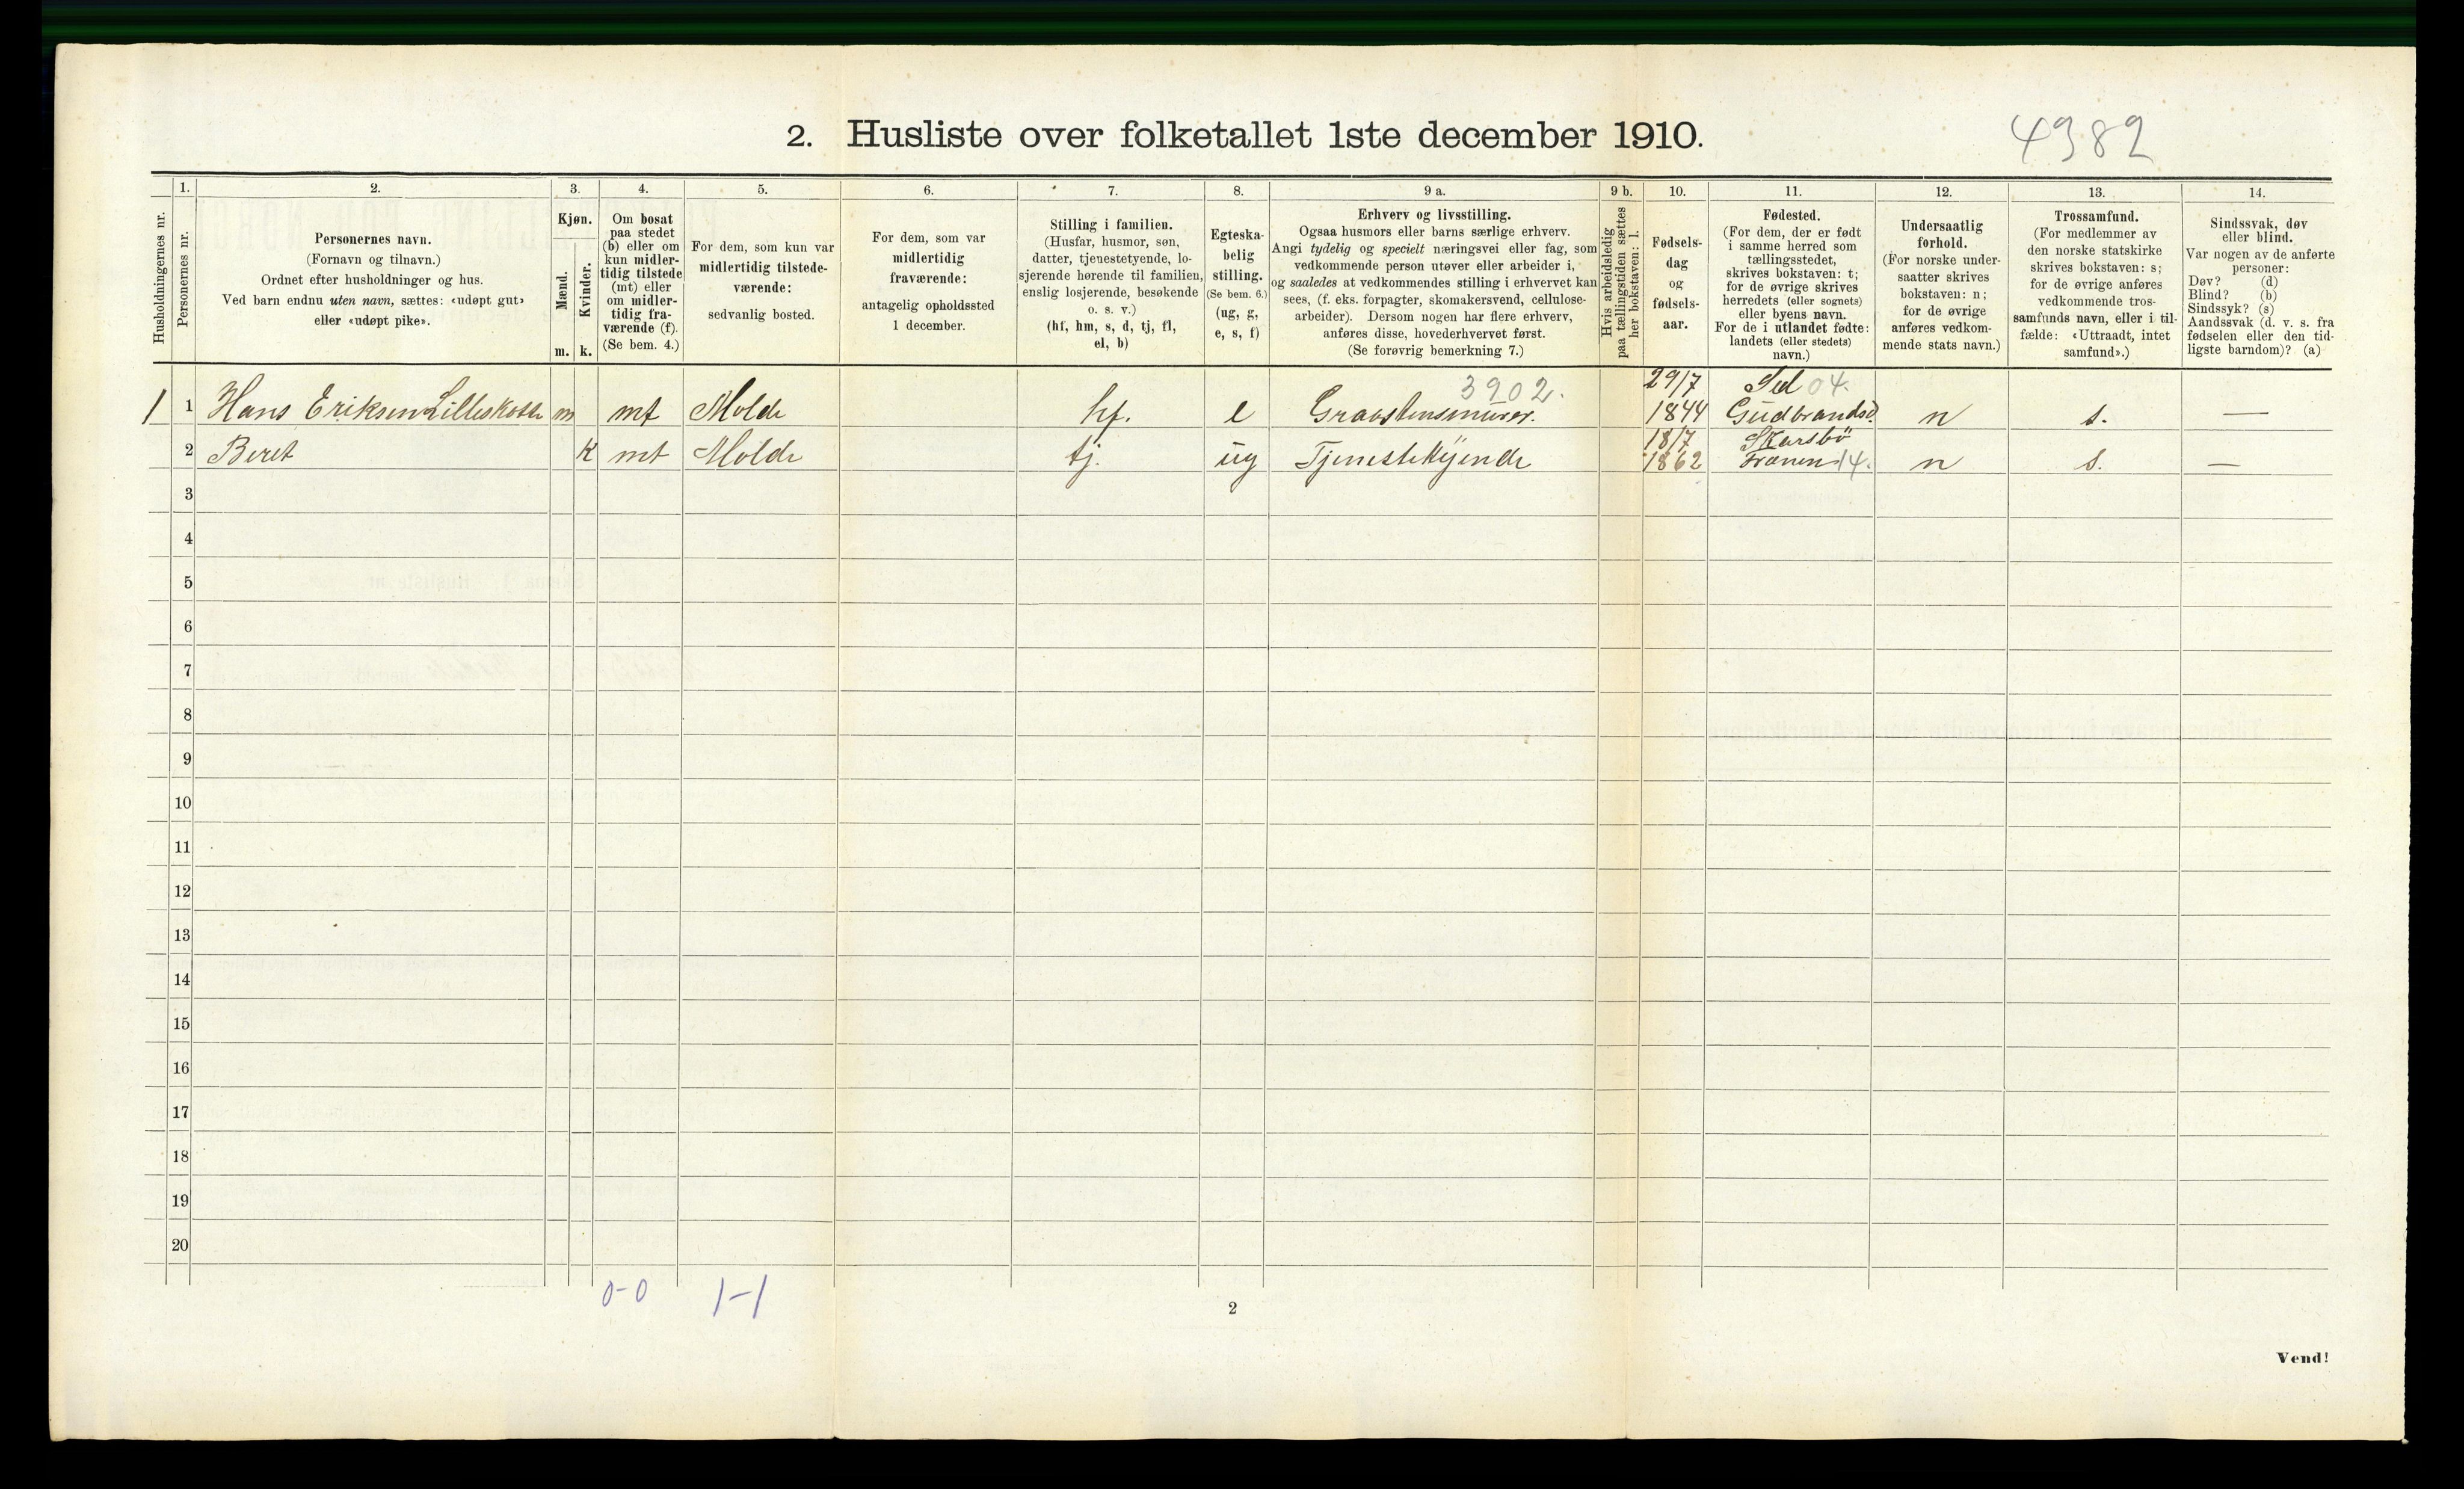 2. Husliste over folketallet 1ste december 1910.
4382
Husholdningernes nr.
1.
Personernes nr.
2.
Personernes navn.
(Fornavn og tilnavn.)
Ordnet efter husholdninger og hus.
Ved barn endnu uten navn, sættes: «udøpt gut»
eller «udøpt pike».
3.
Kjøn.
Mænd.
Kvinder.
m. k.
4.
Om bosat
paa stedet
(b) eller om
kun midler-
tidig tilstede
(mt) eller
om midler-
tidig fra-
værende (f).
(Se bem. 4.)
5.
For dem, som kun var
midlertidig tilstede-
værende:
sedvanlig bosted.
6.
For dem, som var
midlertidig
fraværende:
antagelig opholdssted
1 december.
7.
Stilling i familien.
(Husfar, husmor, søn,
datter, tjenestetyende, lo-
sjerende hørende til familien,
enslig losjerende, besøkende
o. s. v.)
(hf, hm, s, d, tj, fl,
el, b)
8.
Egteska-
belig
stilling.
(Se bem. 6.)
(ug, g,
e, s, f)
9 a.
Erhverv og livsstilling.
Ogsaa husmors eller barns særlige erhverv.
Angi tydelig og specielt næringsvei eller fag, som
vedkommende person utøver eller arbeider i,
og saaledes at vedkommendes stilling i erhvervet kan
sees, (f. eks. forpagter, skomakersvend, cellulose-
arbeider). Dersom nogen har flere erhverv,
anføres disse, hovederhvervet først.
(Se forøvrig bemerkning 7.)
9 b.
Hvis arbeidsledig
paa tællingstiden sættes
her bokstaven: l.
10.
Fødsels-
dag
og
fødsels-
aar.
11.
Fødested.
(For dem, der er født
i samme herred som
tællingsstedet,
skrives bokstaven: t;
for de øvrige skrives
herredets (eller sognets)
eller byens navn.
For de i utlandet fødte:
landets (eller stedets)
navn.)
12.
Undersaatlig
forhold.
(For norske under-
saatter skrives
bokstaven: n;
for de øvrige
anføres vedkom-
mende stats navn.)
13.
Trossamfund.
(For medlemmer av
den norske statskirke
skrives bokstaven: s;
for de øvrige anføres
vedkommende tros-
samfunds navn, eller i til-
fælde: «Uttraadt, intet
samfund».)
14.
Sindssvak, døv
eller blind.
Var nogen av de anførte
personer:
Døv? (d)
Blind? (b)
Sindssyk? (s)
Aandssvak (d. v. s. fra
fødselen eller den tid-
ligste barndom)? (a)
3902. 29/7 Sel 04.
1 1 Hans Eriksen m mt Molde hf. e Graastensmurer. 1844 Gudbrandsd. n s. —
18/7 Skarsbö
2 Beret K mt Molde tj. ug Tjenestekyende 1862 Frænen 14. n s. —
3
4
5
6
7
8
9
10
11
12
13
14
15
16
17
18
19
20
0-0 1-1
2
Vend!